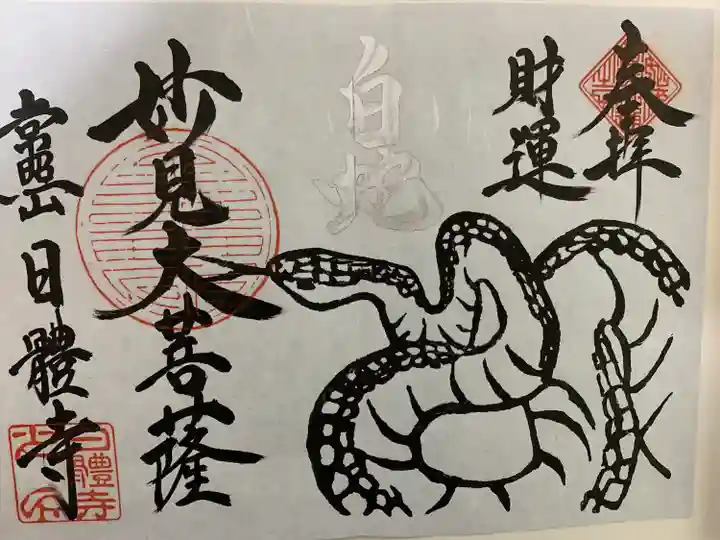 奉拝
財運
白蛇
妙見大菩薩
日體寺
體寺